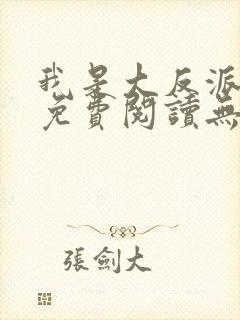 我是大反派
免費閱讀無
張劍大